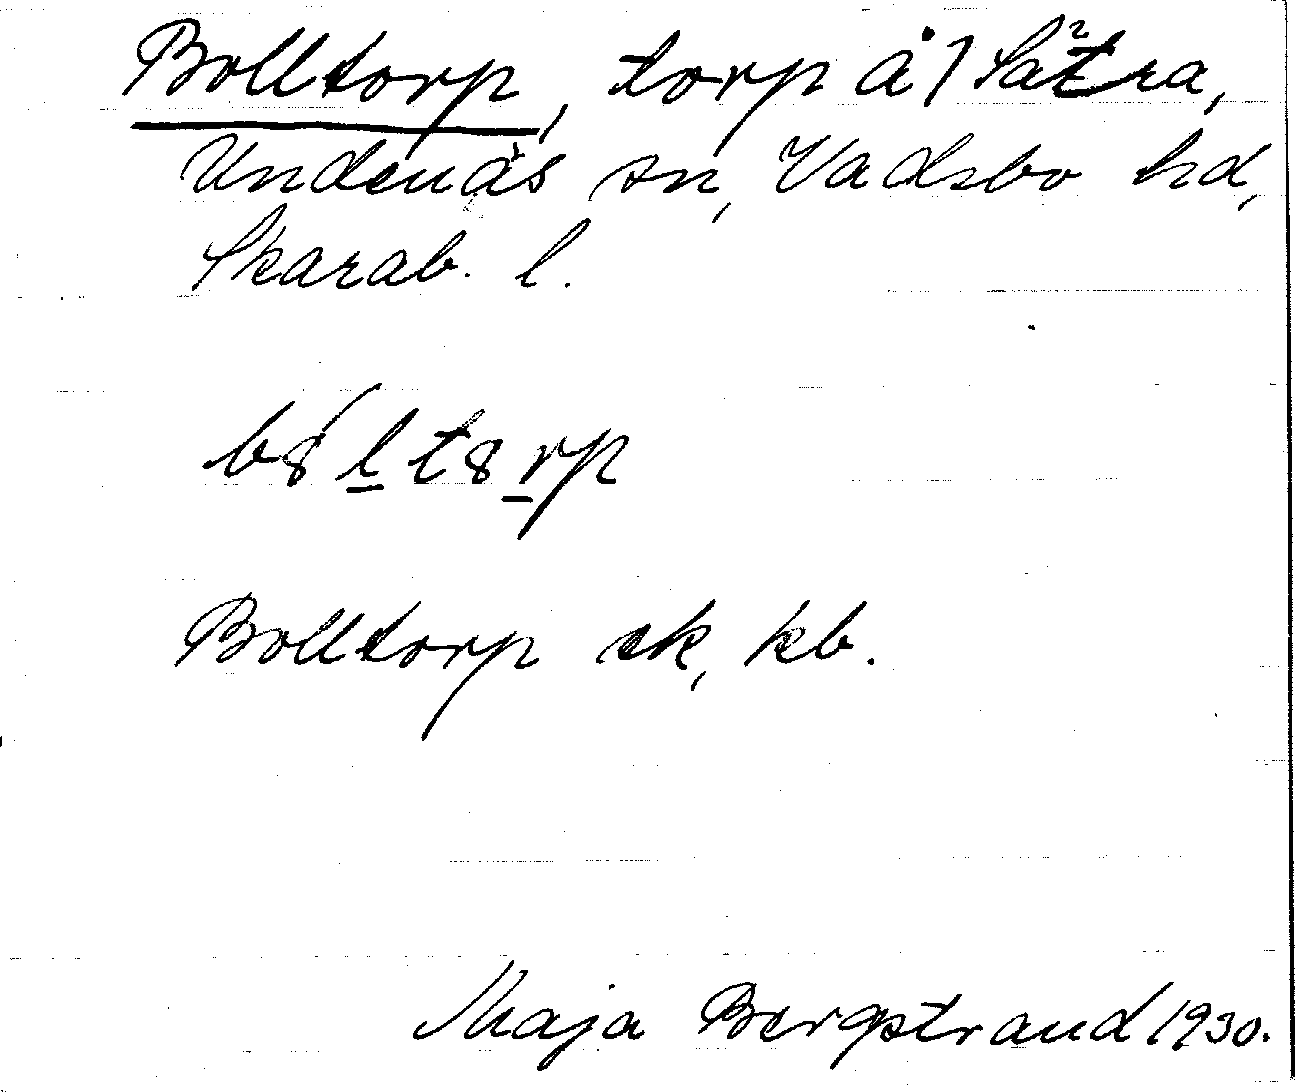 Bolltorp, torp å 1 Sätra,
Undenäs sn, Vadsbo hd,
Skarab. l.
bȣ́ltȣrp
Bolltorp ek, kb.
Maja Bergstrand 1930.